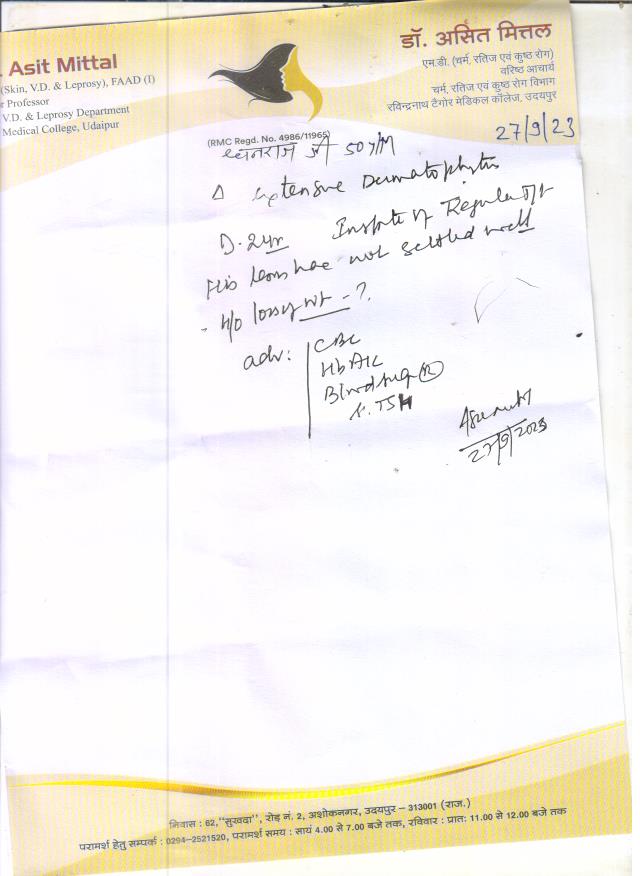 . Asit Mittal
(Skin, V.D. & Leprosy), FAAD (I)
r Professor
V.D. & Leprosy Department
Medical College, Udaipur
डॉ. असित मित्तल
एम.डी. (चर्म, रतिज एवं कुष्ठ रोग)
वरिष्ठ आचार्य
चर्म, रतिज एवं कुष्ठ रोग विभाग
रविन्द्रनाथ टैगोर मेडिकल कॉलेज, उदयपुर
27/9/23
(RMC Regd. No. 4986/11965)
धनराज जी 50y/M
Δ Extensive Dermatophytes
D. 2yr Inspite of Regular
His lesions have not settled well
- H/o loss wt - ?
adv: CBC
HbA1C
Blood sugar (R)
S. TSH
27/9/2023
निवास : 62,"सुखदा", रोड़ नं. 2, अशोकनगर, उदयपुर – 313001 (राज.)
परामर्श हेतु सम्पर्क : 0294-2521520, परामर्श समय : सायं 4.00 से 7.00 बजे तक, रविवार : प्रातः 11.00 से 12.00 बजे तक